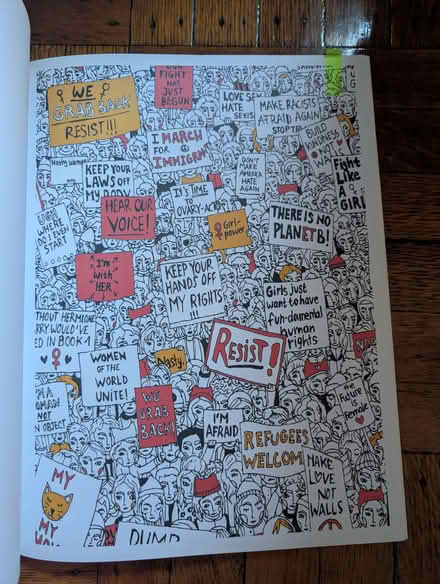 WE
GRAB BACK
RESIST!!!
FIGHT
HAS
JUST
BEGUN
LOVE SEX
HATE
SEXIS
MAKE RACISTS
AFRAID AGAIN
STOP
BUILD
KINDNESS
NOT
WA
I MARCH
FOR
IMMIGRAN
Nasty Woman
KEEP YOUR
LAWS OFF
MY BODY
DON'T
MAKE
AMERIKA
HATE
AGAIN
Fight
LIKE
A GIRL
IT'S TIME
TO
OVARY-ACT
HEAR OUR
VOICE!
Girl-
power
THERE IS NO
PLANET B!
WHERE
DO I EVEN
START
I'm
with
HER
KEEP YOUR
HANDS OFF
MY RIGHTS
!!!
Girls just
want to have
fun-damental
human
rights
THOUT HERMIONE
RRY WOULD'VE
ED IN BOOK 1
RESIST!
WOMEN
OF THE
WORLD
UNITE!
Nasty
the
Future
is
Female
WE
GRAB
BACK!
NOT
N OBJECT
I'M
AFRAID
REFUGEES
WELCOM
MAKE
LOVE
NOT
WALLS
MY
MY
DUMP